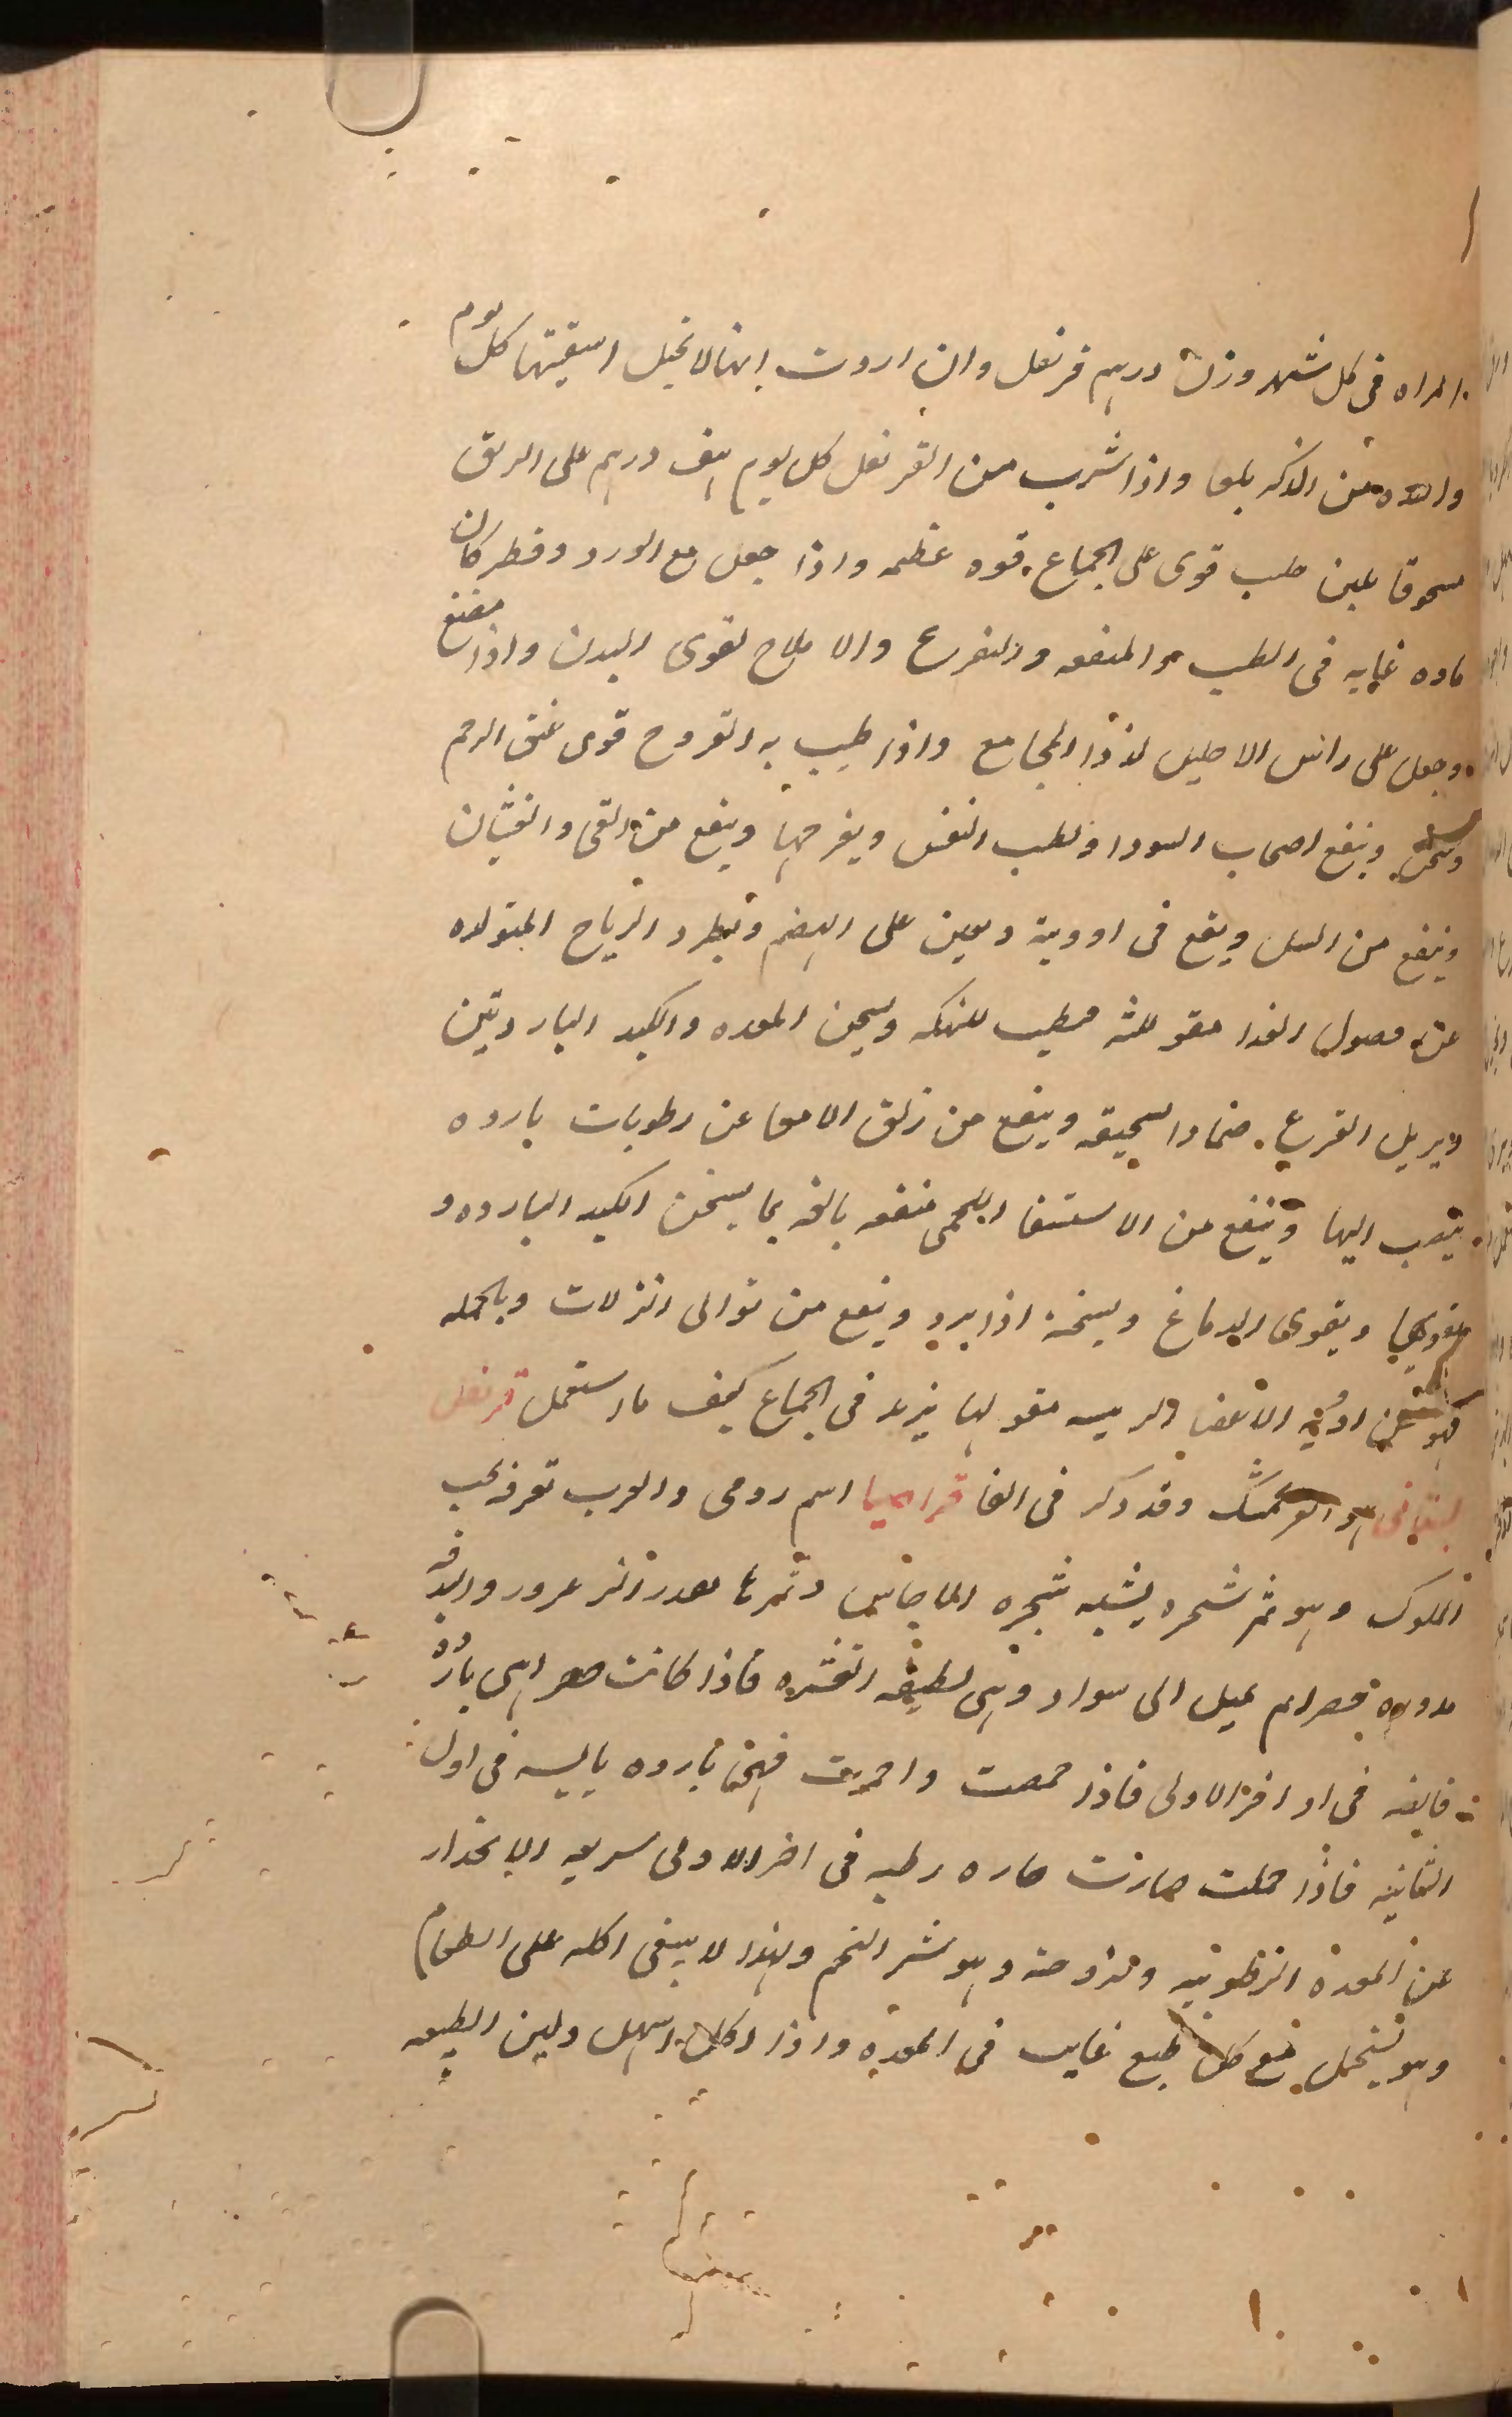 المراه فى كل شهر وزن درهم قرنفل وان اردت انها لا تحبل اسقيتها كل يوم
واحده من الذكر بلعا واذا شرب من القرنفل كل يوم نصف درهم على الريق
مسحوقا بلبن حليب قوى على الجماع قوه عظيمه واذا جعل مع الورد وقطر كان
ماوه غايه فى الطيب والمنفعه والتفريح والاملاح لقوى البدن واذا مضغ
وجعل على راس الاحليل لذذا المجامع واذا طيب به الفروح قوى عنق الرحم
وسخن وينفع اصحاب السودا ويطيب النفس ويفرحها وينفع من القى والغثيان
وينفع من السل ويقع فى ادوية ويعين على الهضم ويطرد الرياح المتولده
عن فصول الغذا مقو للثه مطيب للنكهه ويسخن المعده والكبد الباردتين
ويزيل القرع ضمادا سحيقه وينفع من زلق الامعا عن رطوبات بارده
تنصب اليها وينفع من الاستسقا اللحمى منفعه بالغه بما يسخن الكبد البارده و
يقويها ويقوى الدماغ ويسخنه اذا برد وينفع من توالى النزلات وبالجمله
فهو من ادوية الاعضا الريسه مقو لها يزيد فى الجماع كيف ما استعمل قرنفل
بستانى هو الفرنجمشك وقد ذكر فى الفا قراصيا اسم رومى والعرب تعرفه بحب
الملوك وهو ثمر شجره يشبه شجره الاجاص وثمرها بقدر الزعرور والبندقه
مدوره حمرا يميل الى سواد وهى لطيفه القشره فاذا كانت صفرا هى بارده
قابضه فى اواخر الاولى فاذا حمضت واحمرت فهى بارده يابسه فى اول
الثانيه فاذا حلت صارت حاره رطبه فى اخر الاولى سريعه الانحدار
عن المعدة لرطوبته ولزوجته وهو يثير التخم ولهذا لا ينبغى اكله على الطعام
وهو يستحيل مع كل طبع غالب فى المعده واذا اكل اسهل ولين الطبيعه